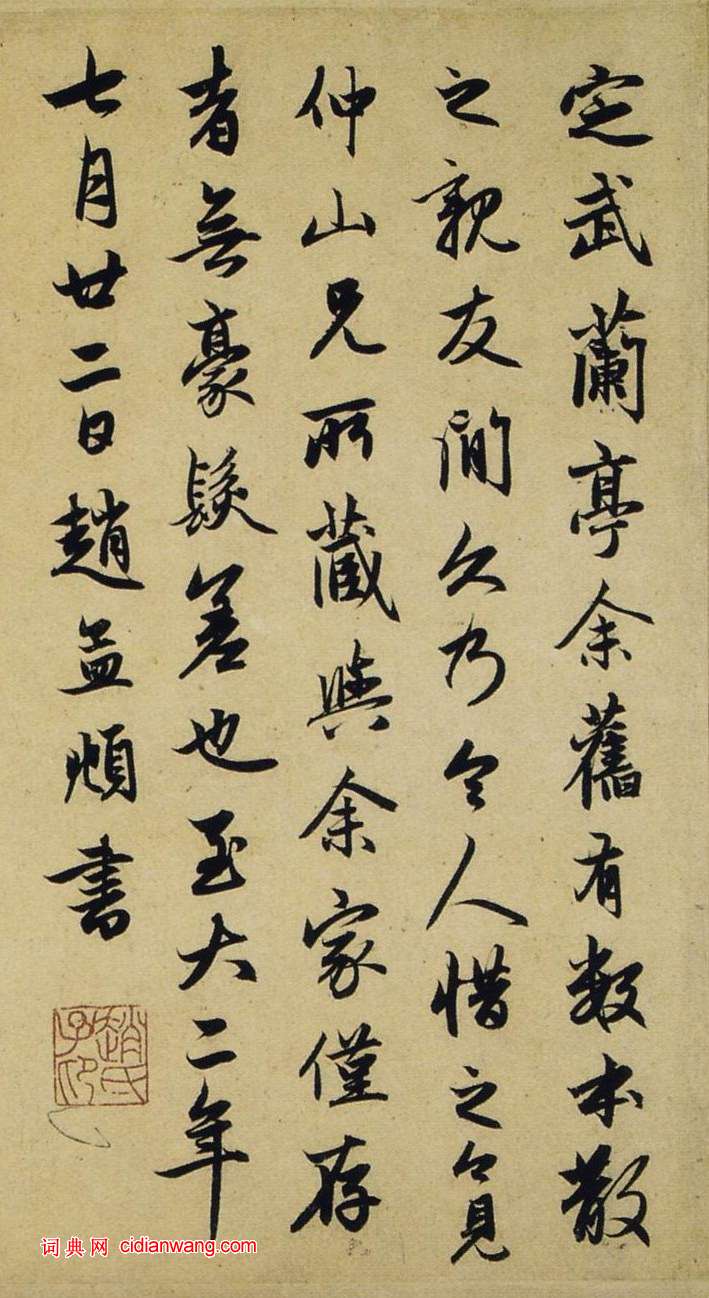 定武蘭亭余舊有數本散
之親友間久乃令人惜之今見
仲山兄所藏與余家僅存
者無豪髮差也至大二年
七月廿二日趙孟頫書
趙氏子昂
词典网 cidianwang.com